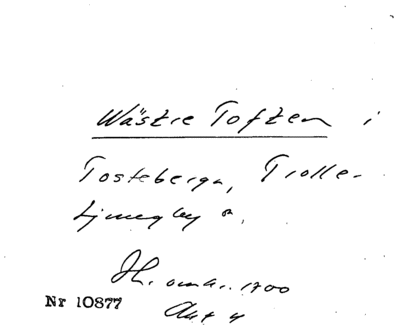 Wästre Toften i
Tosteberga, Trolle-
Ljungby s.
omkr. 1700
Nr 10877
Akt 4